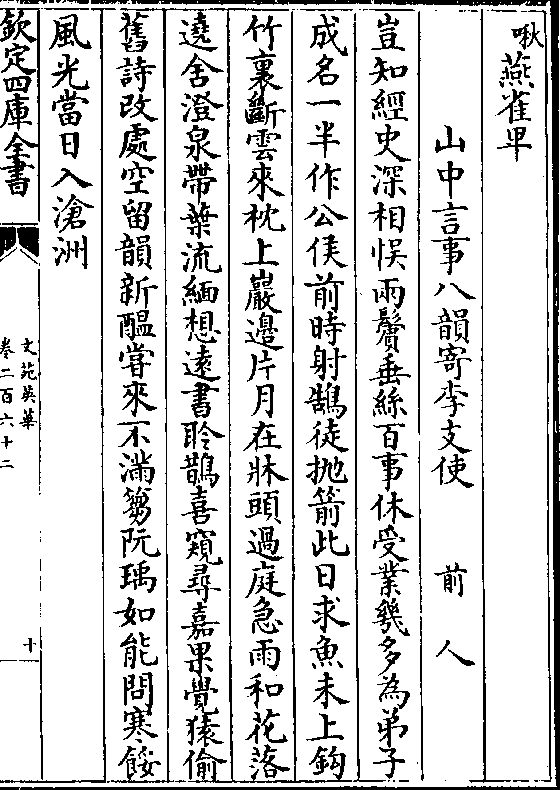 啾燕雀卑
山中言事八韻寄李支使　前人
豈知經史深相悞兩鬢垂絲百事休受業幾多為弟子
成名一半作公侯前時射鵠徒抛箭此日求魚未上鈎
竹裏斷雲來枕上巖邊片月在牀頭過庭急雨和花落
遶舍澄泉帶葉流緬想遠書聆鵲喜窺尋嘉果覺猿偷
舊詩改處空留韻新醖甞來不滿蒭阮瑀如能問寒餒
風光當日入滄洲
欽定四庫全書
文苑英華
卷二百六十二
十